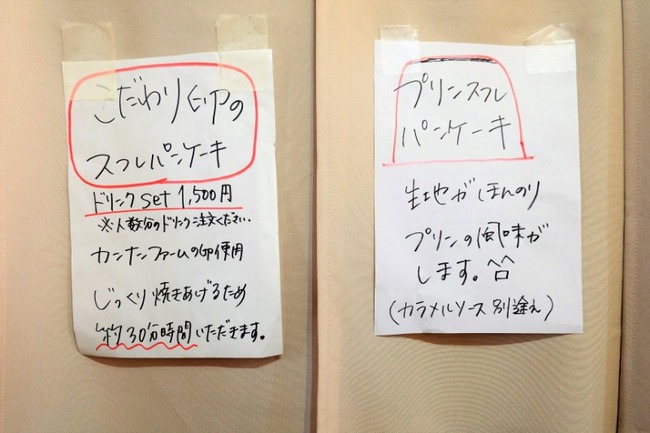 こだわり卵の
スフレパンケーキ
ドリンクset 1,500円
※人数分のドリンクご注文ください.
カンナンファームの卵使用
じっくり焼きあげるため
約30分時間いただきます。
プリンスフレ
パンケーキ
生地がほんのり
プリンの風味が
します。^口^
(カラメルソース別途入)